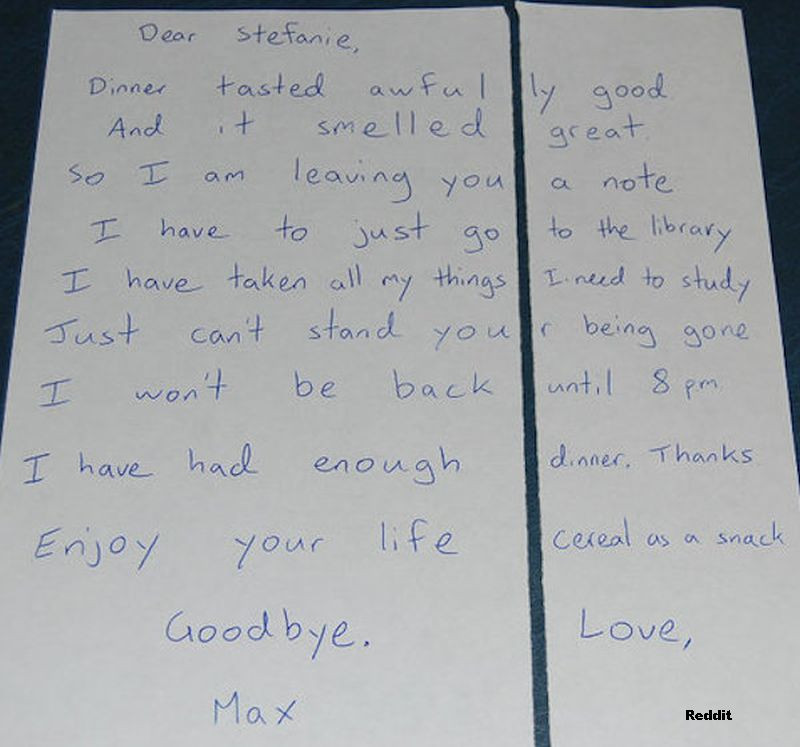 Dear Stefanie,
Dinner tasted awful ly good
And it smelled great.
So I am leaving you a note
I have to just go to the library
I have taken all my things I need to study
Just can't stand you r being gone
I won't be back until 8 pm
I have had enough dinner. Thanks
Enjoy your life cereal as a snack
Goodbye. Love,
Max
Reddit